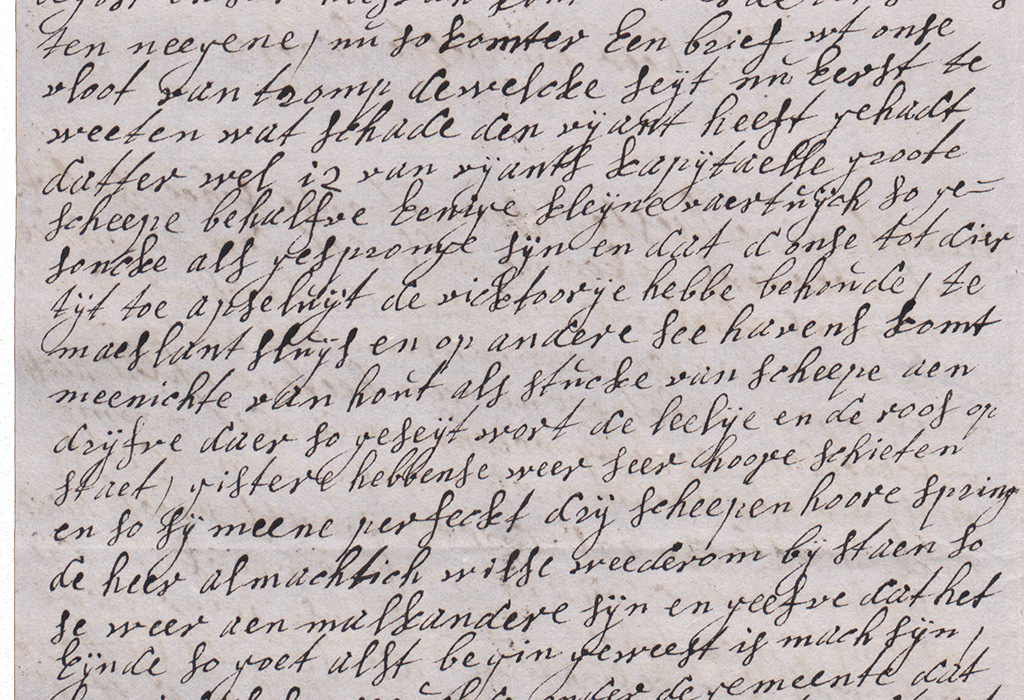 ten neegene / nu so komter Een brief wt onse
vloot van tromp dewelcke seyt nu Eerst te
weeten wat schade den vyant heeft gehadt
datter wel 12 van vyants kapijtaelle groote
scheepe behalfve Eenige kleyne vaertuijch so ge=
soncke als gespronge sijn en dat d onse tot dier
tijt toe apseluijt de vicktoorije hebbe behoude / te
maeslant sluijs en op andere see havens komt
meenichte van hout als stucke van scheepe aen
drijfve daer so geseijt wort de leelije en de roos op
staet / gistere hebbense weer seer hoore schieten
en so sij meene perfeckt drij scheepen hoore spring
de heer almachtich wilse weederom bij staen so
se weer aen malkandere sijn en geefve dat het
Eijnde so goet alst begin geweest is mach sijn /
onder de gemeente dat